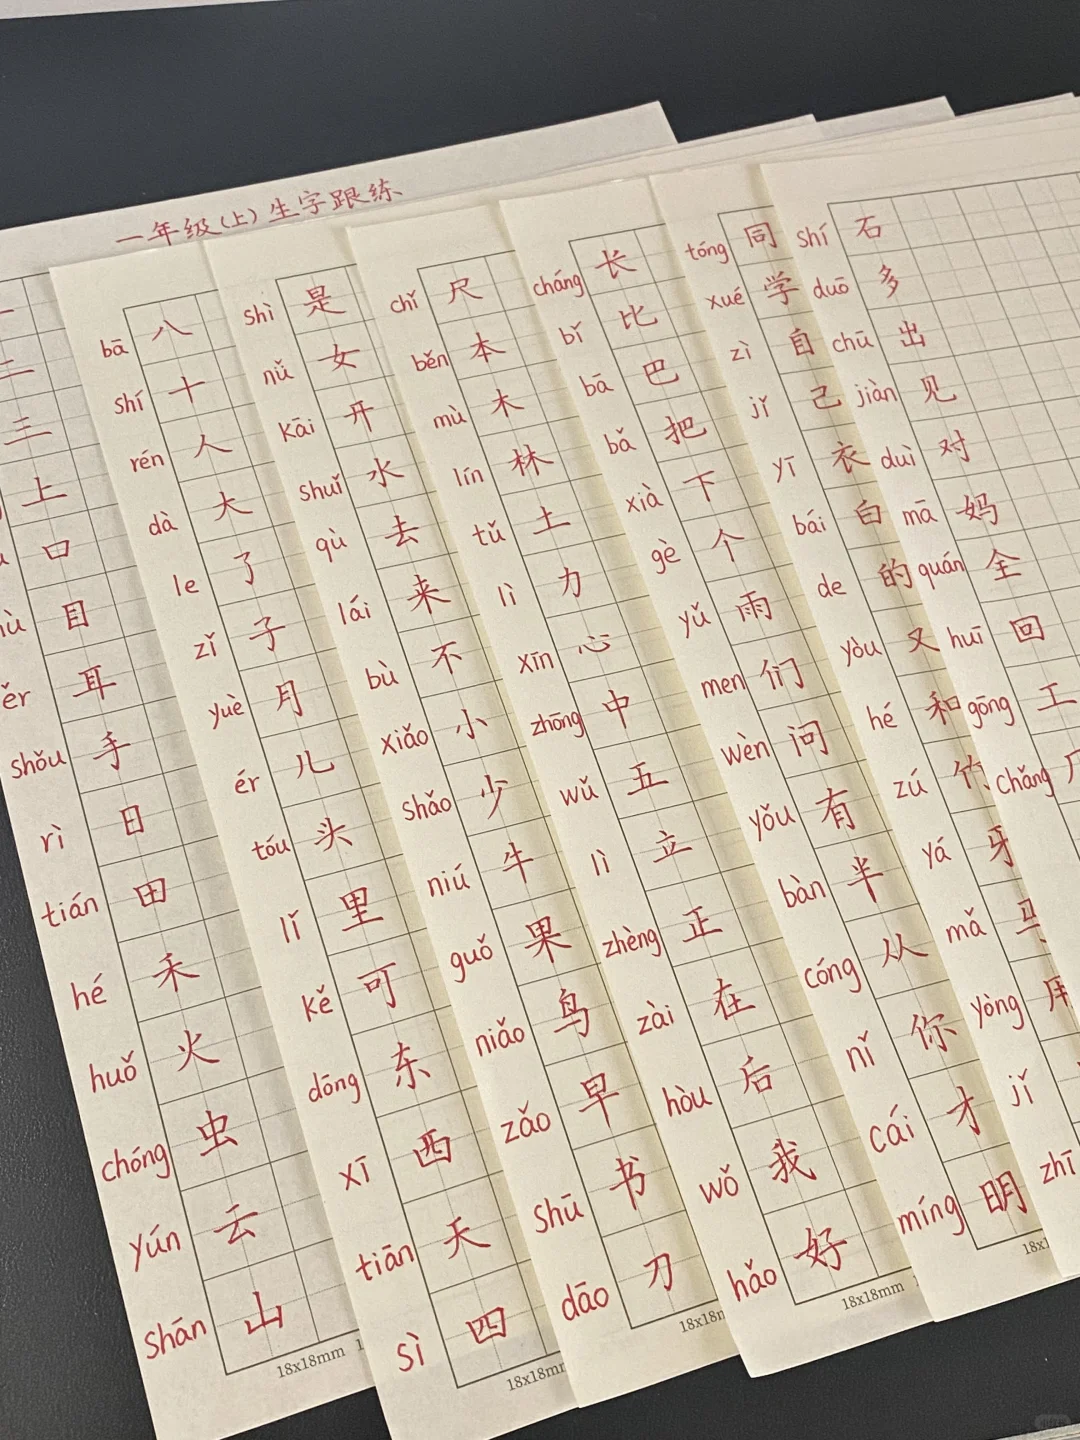 一年级(上)生字跟练
二
三
上
口
目
ěr 耳
shǒu 手
rì 日
tián 田
hé 禾
huǒ 火
chóng 虫
yún 云
shān 山
18x18mm
bā 八
shí 十
rén 人
dà 大
le 了
zǐ 子
yuè 月
ér 儿
tóu 头
lǐ 里
kě 可
dōng 东
xī 西
tiān 天
sì 四
18x18mm
shì 是
nǚ 女
kāi 开
shuǐ 水
qù 去
lái 来
bù 不
xiǎo 小
shǎo 少
niú 牛
guǒ 果
niǎo 鸟
zǎo 早
shū 书
dāo 刀
chǐ 尺
běn 本
mù 木
lín 林
tǔ 土
lì 力
xīn 心
zhōng 中
wǔ 五
lì 立
zhèng 正
zài 在
hòu 后
wǒ 我
hǎo 好
18x18mm
cháng 长
bǐ 比
bā 巴
bǎ 把
xià 下
gè 个
yǔ 雨
men 们
wèn 问
yǒu 有
bàn 半
cóng 从
nǐ 你
cái 才
míng 明
tóng 同
xué 学
zì 自
jǐ 己
yī 衣
bái 白
de 的
yòu 又
hé 和
zú 竹
yá 牙
mǎ 马
yòng 用
jǐ
zhī
shí 石
duō 多
chū 出
jiàn 见
duì 对
mā 妈
quán 全
huī 回
gōng 工
chǎng 厂